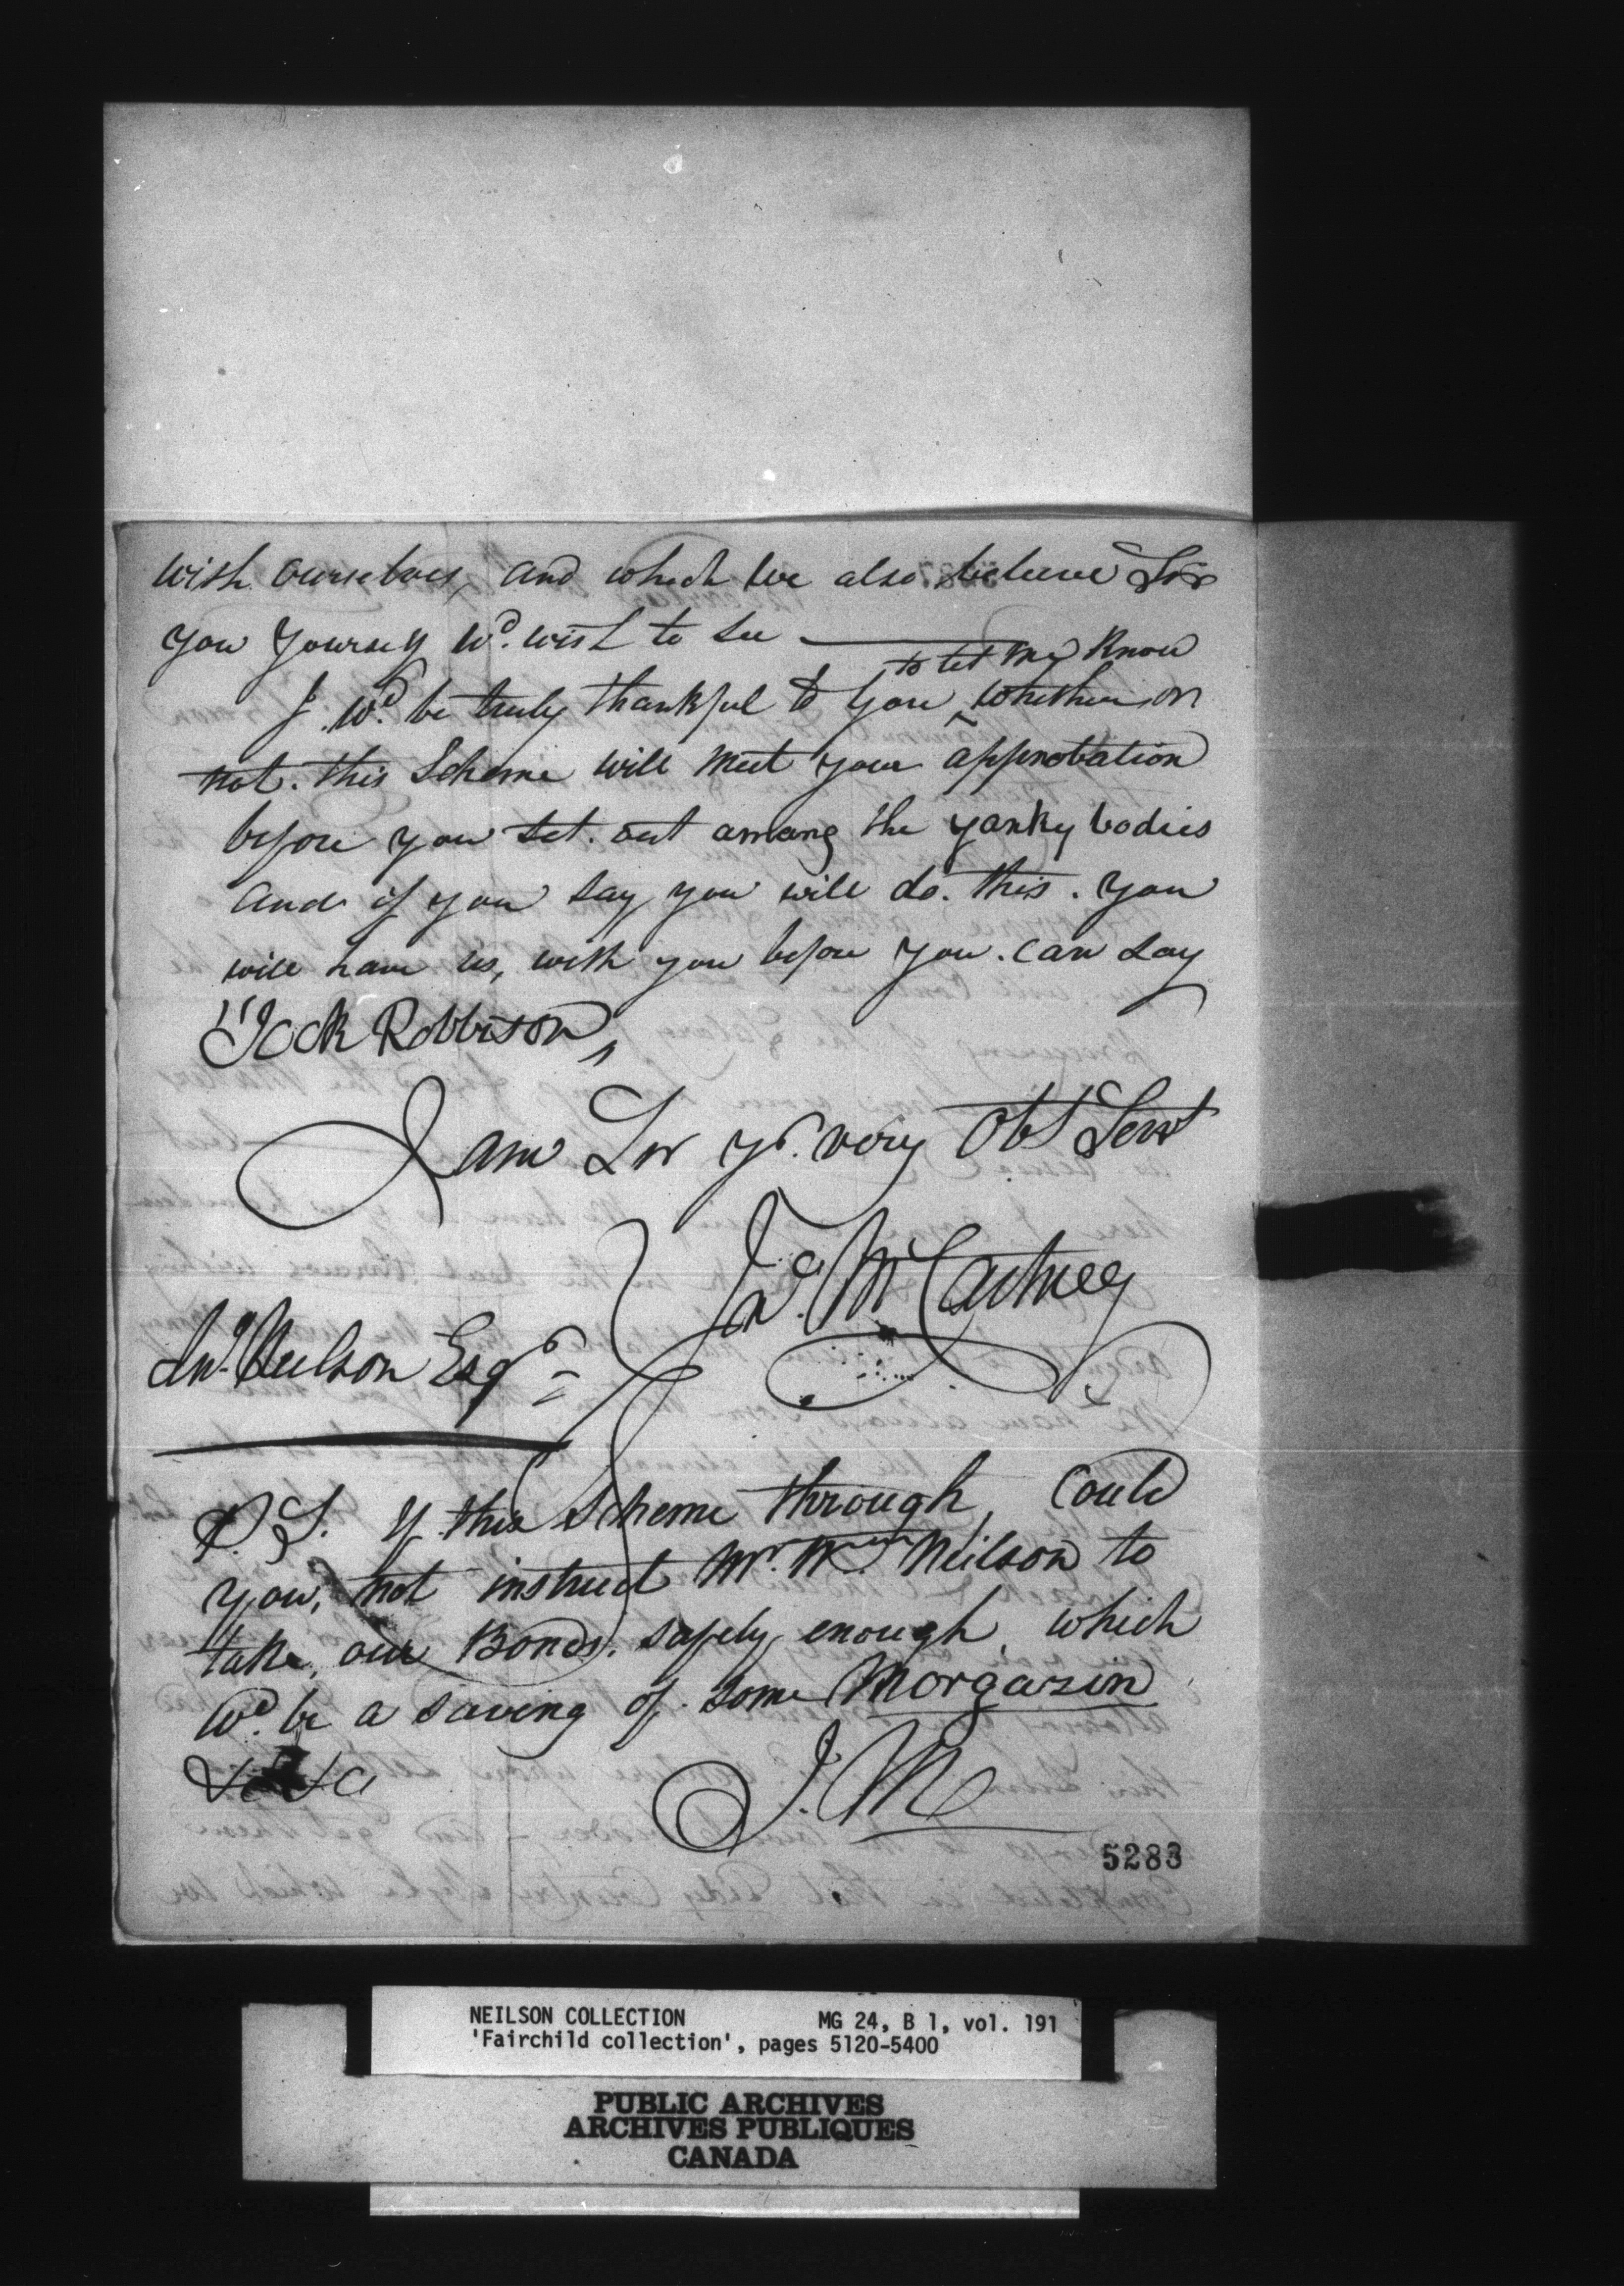 wish ourselves, and which we also believe Sir
you yourself wd. wish to see —
to let me know
I wd. be truly thankful to you ‸ whether or
not. this Scheme will meet your approbation
before you set. out among the yanky bodies
and if you say you will do. this. you
will have us, with you before you. can say
"Jack Robbison,
I am Sir yr. very Obt Servt
Jno. McCartney
Jno. Neilson Esqr
P.S. If this Scheme through, Could
you, not instruct Mr. Wm. Neilson to
take, our Bonds. safely enough, which
wd. be a saving of. some Morgazin
&c &c
J. M
5283
NEILSON COLLECTION MG 24, B 1, vol. 191
'Fairchild collection', pages 5120-5400
PUBLIC ARCHIVES
ARCHIVES PUBLIQUES
CANADA